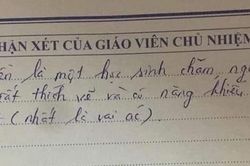 HẬN XÉT CỦA GIÁO VIÊN CHỦ NHIỆM
là một học sinh chăm, ng
rất thích vẽ và có năng khiếu
(nhất là vai ác).